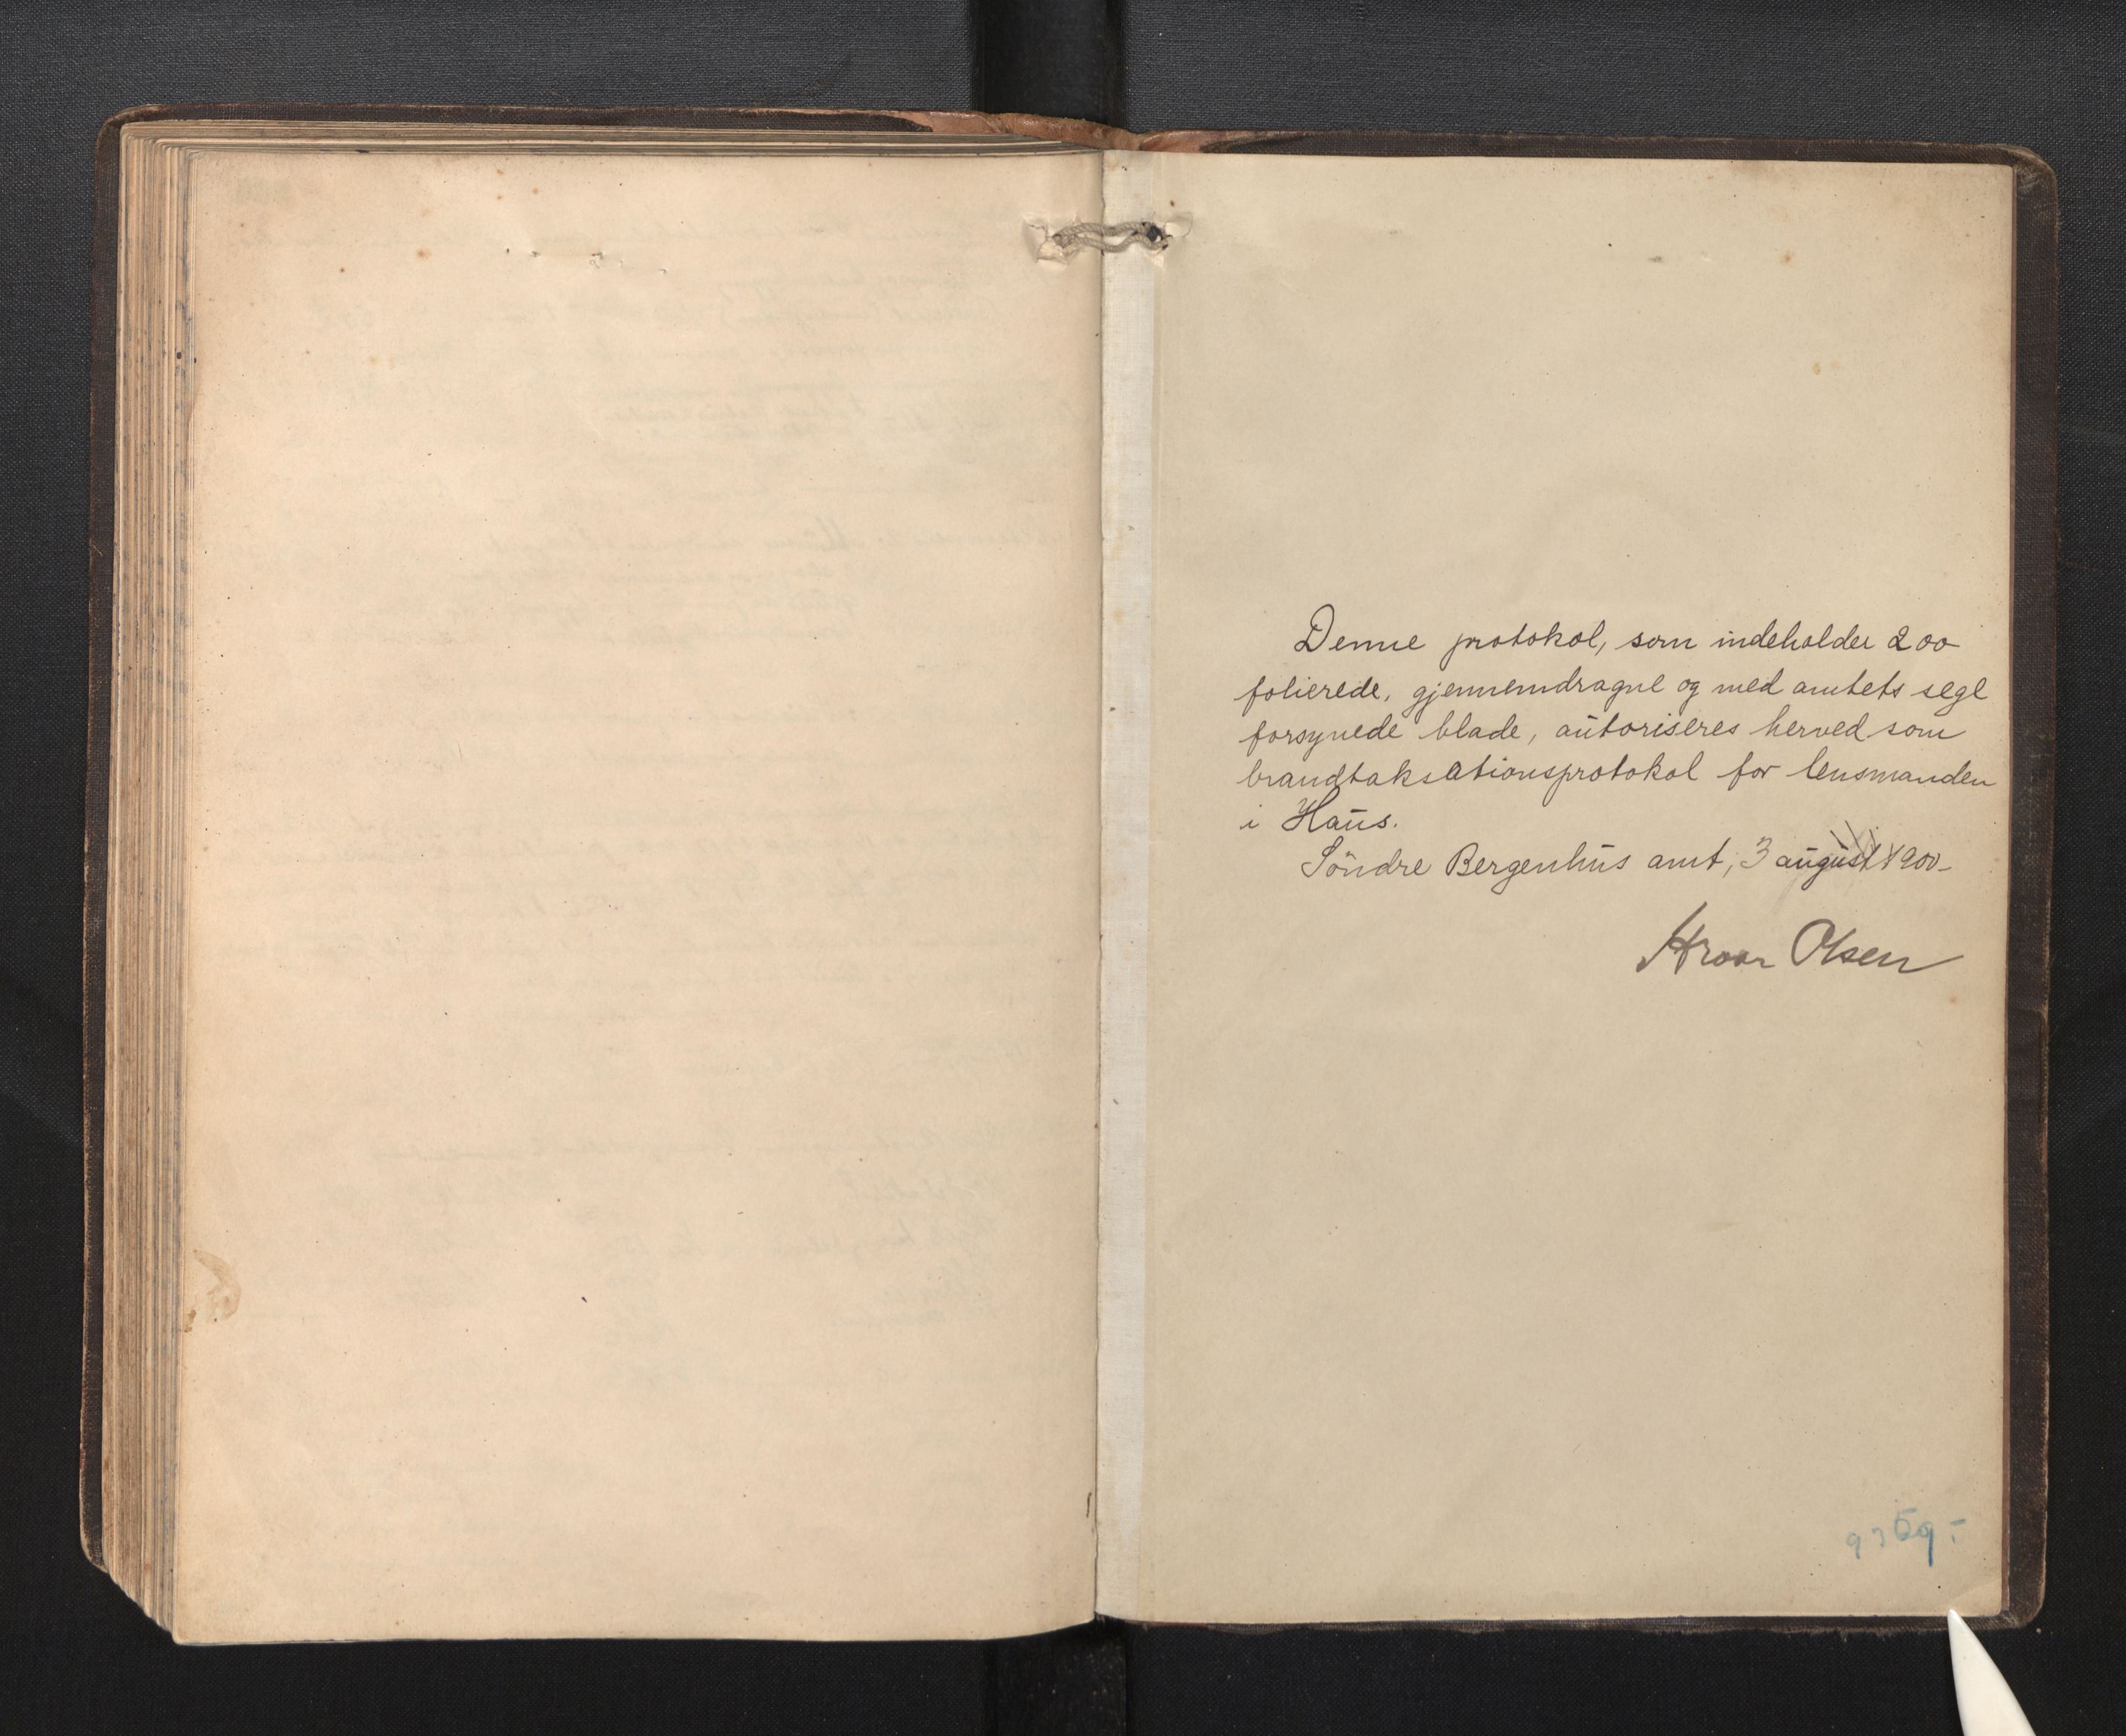 Denne protokol, som indeholder 200
folierede, gjennemdragne og med amtets segl
forsynede blade, autoriseres herved som
brandtaksationsprotokol for lensmanden
i Haus.
Söndre Bergenhus amt, 3 august 1900-
Hroar Olsen